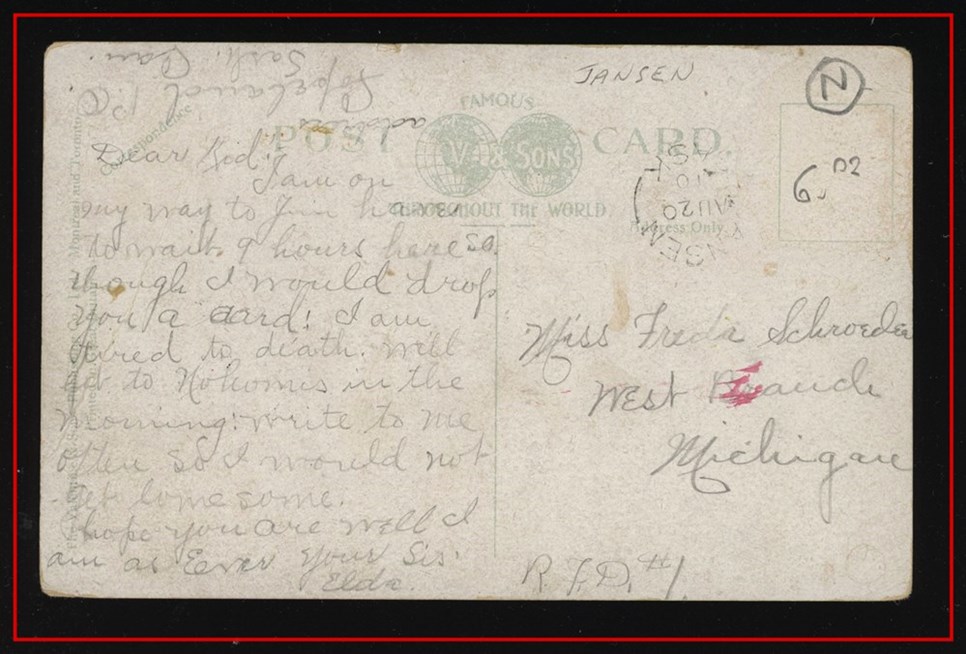 Sask. Can.
Copeland P.O.
address
JANSEN
N
FAMOUS
POST CARD.
V. & SONS
THROUGHOUT THE WORLD
Correspondence
Address Only
6.02
AU 20
Dear Kid:
I am on
my way to Jim have
to wait 9 hours here so
though I would drop
you a card! I am
tired to death. Will
to Nokomis in the
morning: write to me
often so I would not
get lonesome.
hope you are well I
am as Eever your Sis
Elda.
Miss Freda Schroeder
West Branch
Michigan
R.F.D. #1